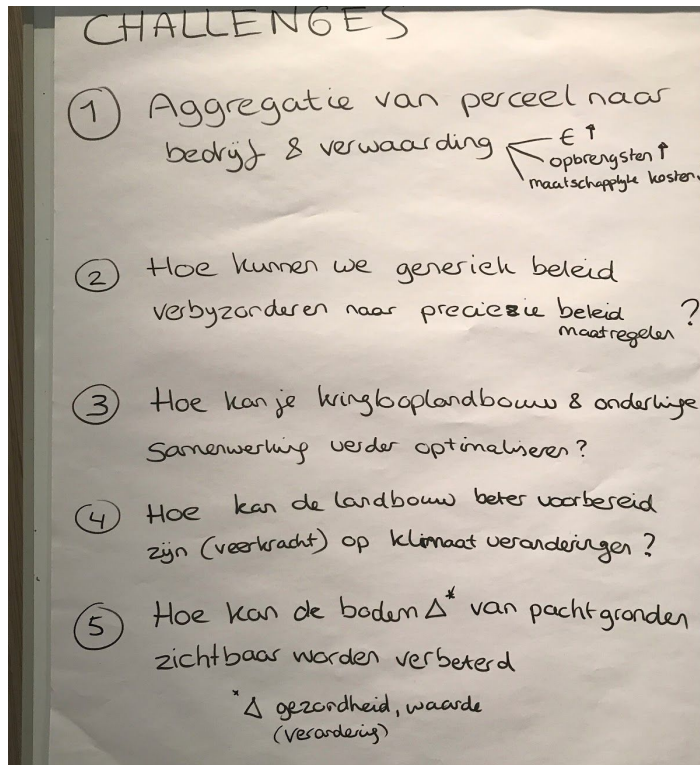 CHALLENGES
1 Aggregatie van perceel naar
bedrijf & verwaarding
€ ↑
opbrengsten ↑
maatschapplyke kosten.
2 Hoe kunnen we generiek beleid
verbyzonderen naar preciezie beleid ?
maatregelen
3 Hoe kan je kringlooplandbouw & onderlinge
samenwerking verder optimaliseren?
4 Hoe kan de landbouw beter voorbereid
zijn (veerkracht) op klimaat veranderingen?
5 Hoe kan de bodem Δ* van pachtgronden
zichtbaar worden verbeterd
* Δ gezondheid, waarde
(verandering)